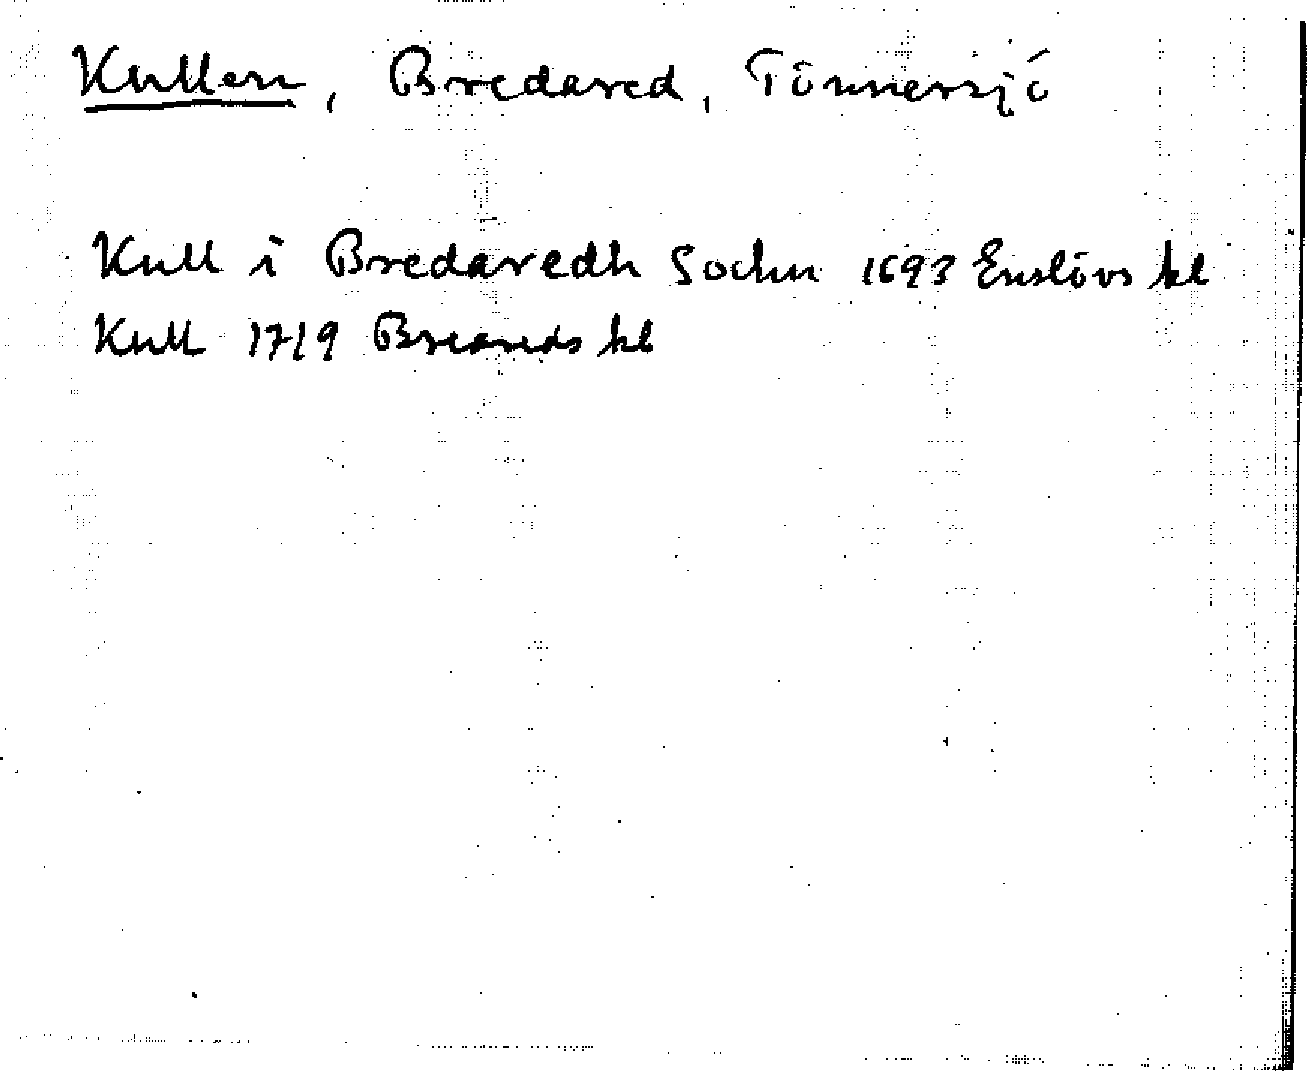 Kullen, Bredared, Tönnersjö
Kull i Bredaredh Sochn 1693 Enslövs kl
Kull 1719 Breareds kb